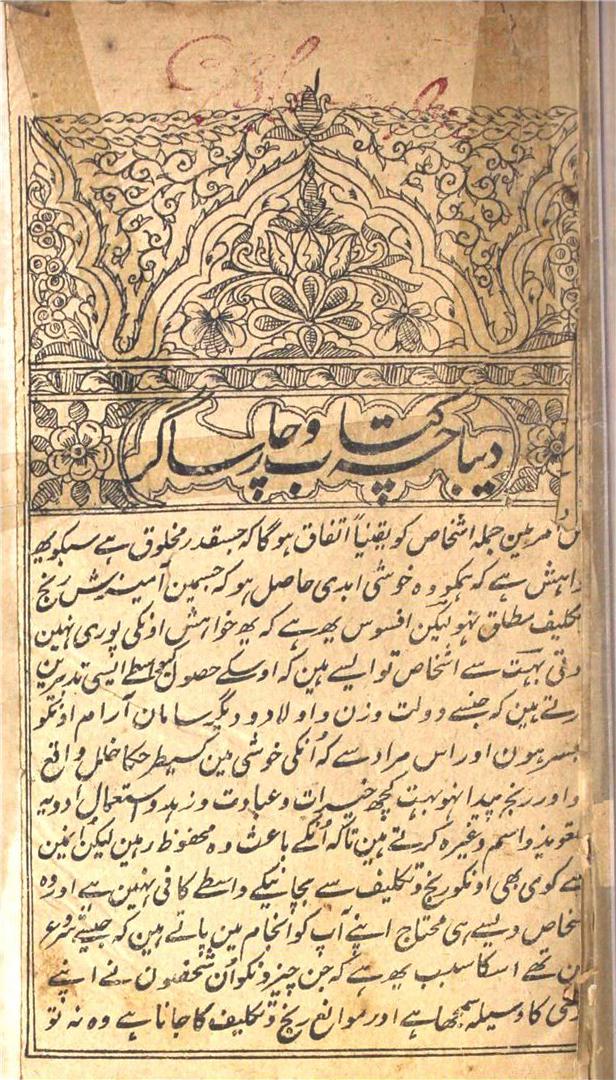 دیباچہ کتاب وچار ساگر
امر مین جملہ اشخاص کو یقنیاً اتفاق ہوگا کہ جسقدر مخلوق ہے سبکو یھ
ہے کہ ہمکو وہ خوشی ابدی حاصل ہو کہ جسمین آمیزش رنج
مطلق نہو لیکن افسوس یھ ہے کہ یھ خواہش اونکی پوری نہین
بہت سے اشخاص تو ایسے ہین کہ اوسکے حصول کیواسطے ایسی تدبیرین
ہین کہ جنسے دولت و زن و اولاد و دیگر سامان آرام اونکو
ہون اور اس مراد سے کہ اُنکی خوشی مین کسیطرحکا خلل واقع
اور رنج پیدا نہو بہت کچھ خیرات و عبادت و زہد و استعمال ادویہ
و اسم وغیرہ کرتے ہین تاکہ اُنکے باعث وہ محفوظ رہین لیکن انین
سے کوی بھی اونکو رنج و تکلیف سے بچانیکے واسطے کافی نہین ہے اور وہ
ویسے ہی محتاج اپنے آپ کو انجام مین پاتے ہین کہ جیسے شروع
تھے اسکا سبب یھ ہے کہ جن چیزونکو اُن شخصون نے اپنے
کا وسیلہ سمجھا ہے اور موانع رنج و تکلیف کا جانا ہے وہ نہ تو